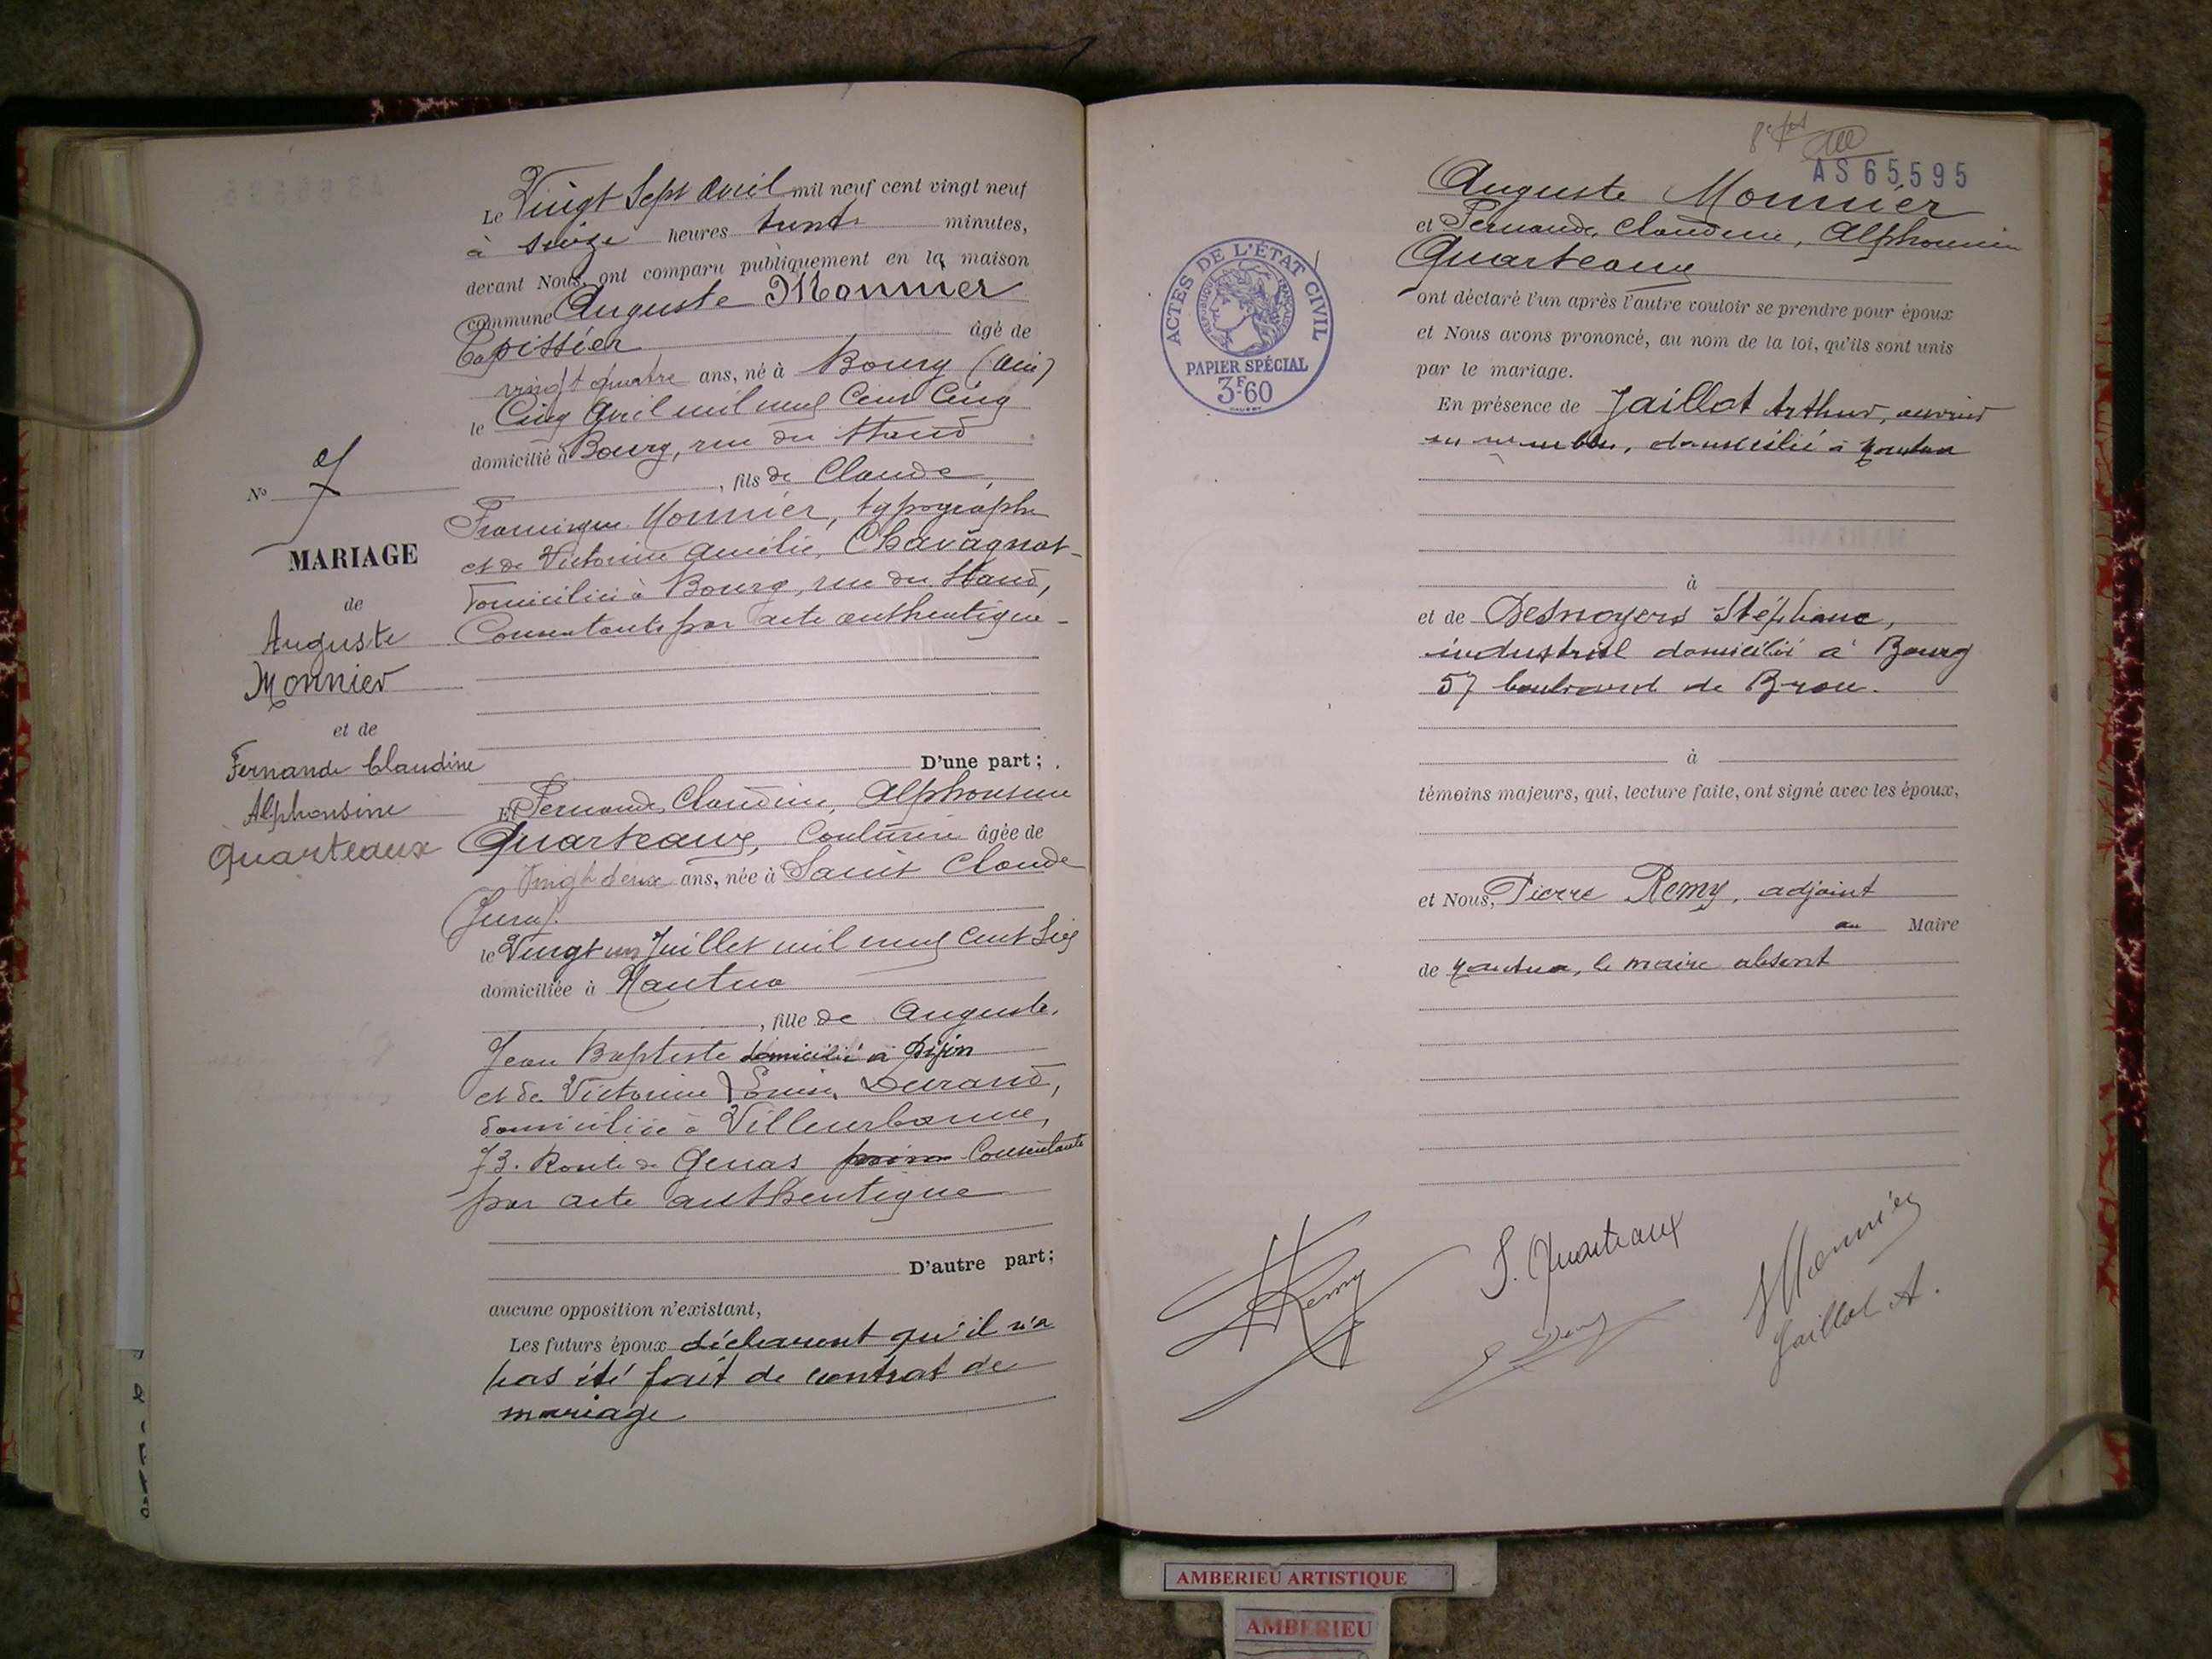 Le Vingt Sept avril mil neuf cent vingt neuf
à seize heures trente minutes,
devant Nous, ont comparu publiquement en la maison
commune Auguste Monnier
Tapissier âgé de
vingt quatre ans, né à Bourg (Ain)
le Cinq Avril mil neuf Cent Cinq
domicilié à Bourg, rue du Stand
, fils de Claude,
Francisque Monnier, typographe
et de Victorine Amélie, Chavagnat
domiciliés à Bourg, rue du Stand,
Consentants par acte authentique
D'une part;
Et Fernande, Claudine, Alphonsine
Quarteaux, Couturière âgée de
Vingt deux ans, née à Saint Claude
(Jura).
le Vingt un Juillet mil neuf cent Six
domiciliée à Nantua
, fille de Auguste,
Jean Baptiste domicilié à Dijon
et de Victorine Louise, Durand,
domiciliée à Villeurbanne,
73. Route de Genas Consentante
par acte authentique
D'autre part;
aucune opposition n'existant,
Les futurs époux déclarent qu'il n'a
pas été fait de contrat de
mariage
No 7
MARIAGE
de
Auguste
Monnier
et de
Fernande Claudine
Alphonsine
Quarteaux
AS 65595
Auguste Monnier
et Fernande, Claudine, Alphonsine
Quarteaux
ont déclaré l'un après l'autre vouloir se prendre pour époux
et Nous avons prononcé, au nom de la loi, qu'ils sont unis
par le mariage.
En présence de Jaillot Arthur, ouvrier
en meubles, domicilié à Nantua
à
et de Desnoyers Stéphane,
industriel domicilié à Bourg
57 boulevard de Brou.
à
témoins majeurs, qui, lecture faite, ont signé avec les époux,
et Nous, Pierre Remy, adjoint
au Maire
de Nantua, le maire absent
Remy
F. Quarteaux
Monnier
Jaillot A.
ACTES DE L'ÉTAT CIVIL
RÉPUBLIQUE FRANÇAISE
PAPIER SPÉCIAL
3F60
AMBERIEU ARTISTIQUE
AMBERIEU